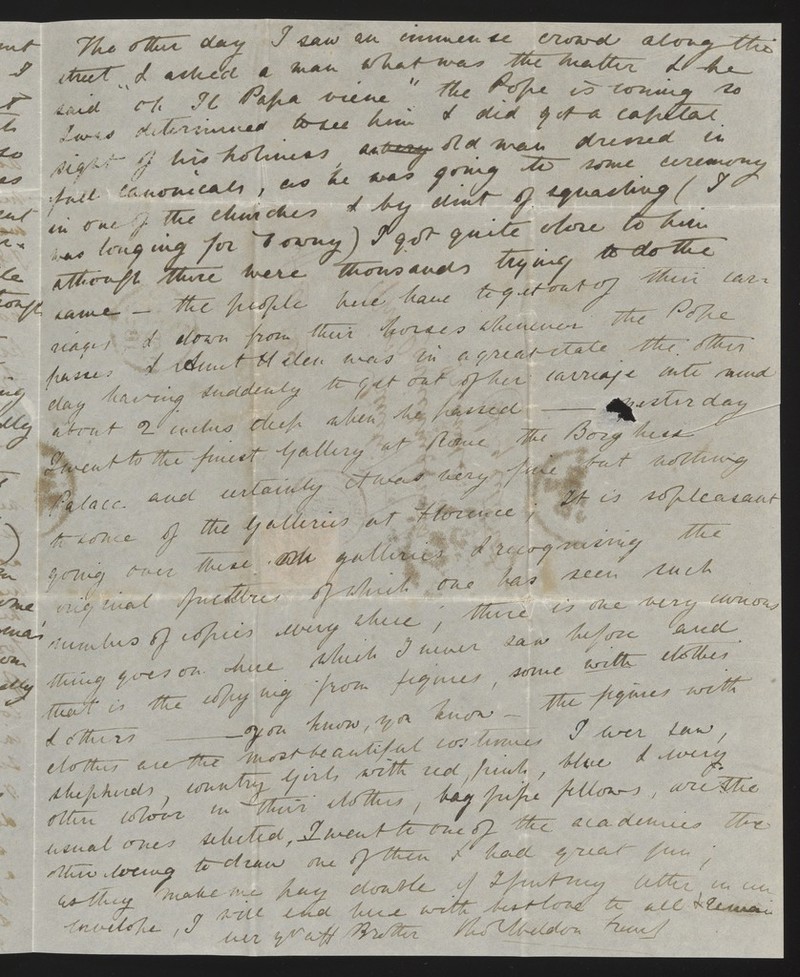 The other day I saw an immense crowd along the
street & asked a man what was the matter & he
said "oh Il Papa viene" the Pope is coming so
I was determined to see him & did get a capital
sight of his holiness, a very old man dressed in
full canonicals, as he was going to some ceremony
in one of the churches & by dint of squashing (I
was longing for Towny) I got quite close to him
although there were thousands trying to do the
same — the people here have to get out of their car-
riages & down from their horses whenever the Pope
passes & Aunt Helen was in a great state the other
day having suddenly to get out of her carriage into mud
about 2 inches deep when he passed — yesterday
I went to the finest Gallery at Rome the Borghese
Palace and certainly it was very fine but nothing
to some of the Galleries at Florence; It is so pleasant
going over these galleries & recognising the
original pictures of which one has seen such
numbers of copies every where; there is one very curious
thing goes on here which I never saw before and
that is the copying from figures, some with clothes
& others — you know, you know — the figures with
clothes are the most beautiful costumes I ever saw,
shepherds, country girls with red, pink, blue & every
other colour in their clothes, bag pipe fellows, are the
usual ones selected, I went to one of the academies the
other evening to draw one of them & had great fun;
as they make me pay double if I put my letter in an
envelope, I will end here with best love to all & remain
ever yr aff Brother Thos Weldon